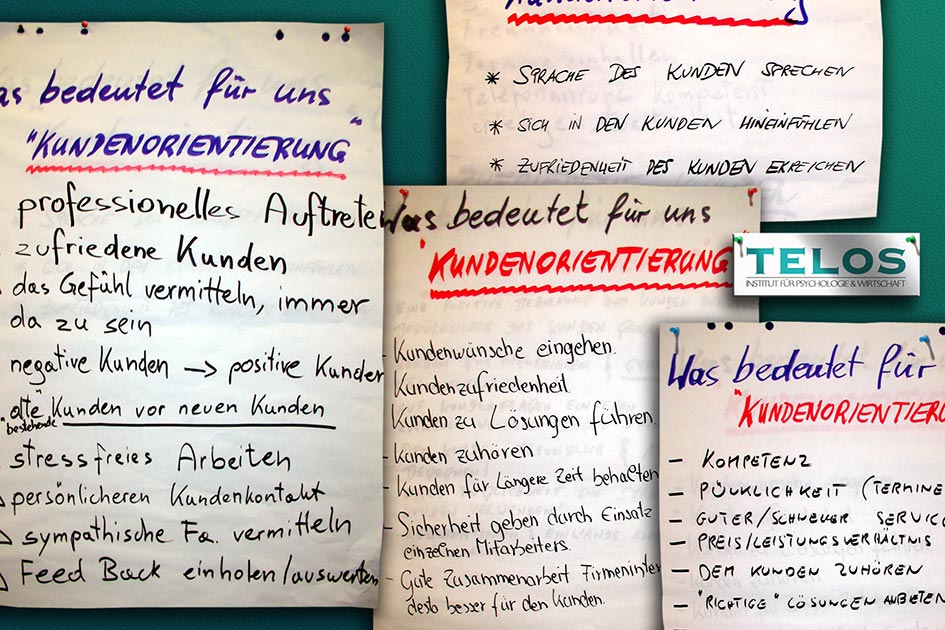 as bedeutet für uns
"KUNDENORIENTIERUNG"
professionelles Auftrete
zufriedene Kunden
das Gefühl vermitteln, immer
da zu sein
negative Kunden → positive Kunden
"alte" Kunden vor neuen Kunden
bestehende
stressfreies Arbeiten
persönlicheren Kundenkontakt
sympathische Fa. vermitteln
Feed Back einholen/auswerten
* SPRACHE DES KUNDEN SPRECHEN
* SICH IN DEN KUNDEN HINEINFÜHLEN
* ZUFRIEDENHEIT DES KUNDEN ERREICHEN
Was bedeutet für uns
"KUNDENORIENTIERUNG"
- Kundenwünsche eingehen.
Kundenzufriedenheit
Kunden zu Lösungen führen.
- Kunden zuhören
- Kunden für Längere Zeit behalten
- Sicherheit geben durch Einsatz
einzelnen Mitarbeiters.
- Gute Zusammenarbeit Firmeninter
desto besser für den Kunden.
TELOS
INSTITUT FÜR PSYCHOLOGIE & WIRTSCHAFT
Was bedeutet für
"KUNDENORIENTIERU
- KOMPETENZ
- PÜCKLICHKEIT (TERMINE
- GUTER/SCHNELLER SERVIC
- PREIS/LEISTUNGSVERHÄLTNIS
- DEM KUNDEN ZUHÖREN
- "RICHTIGE" LÖSUNGEN ANBIETEN